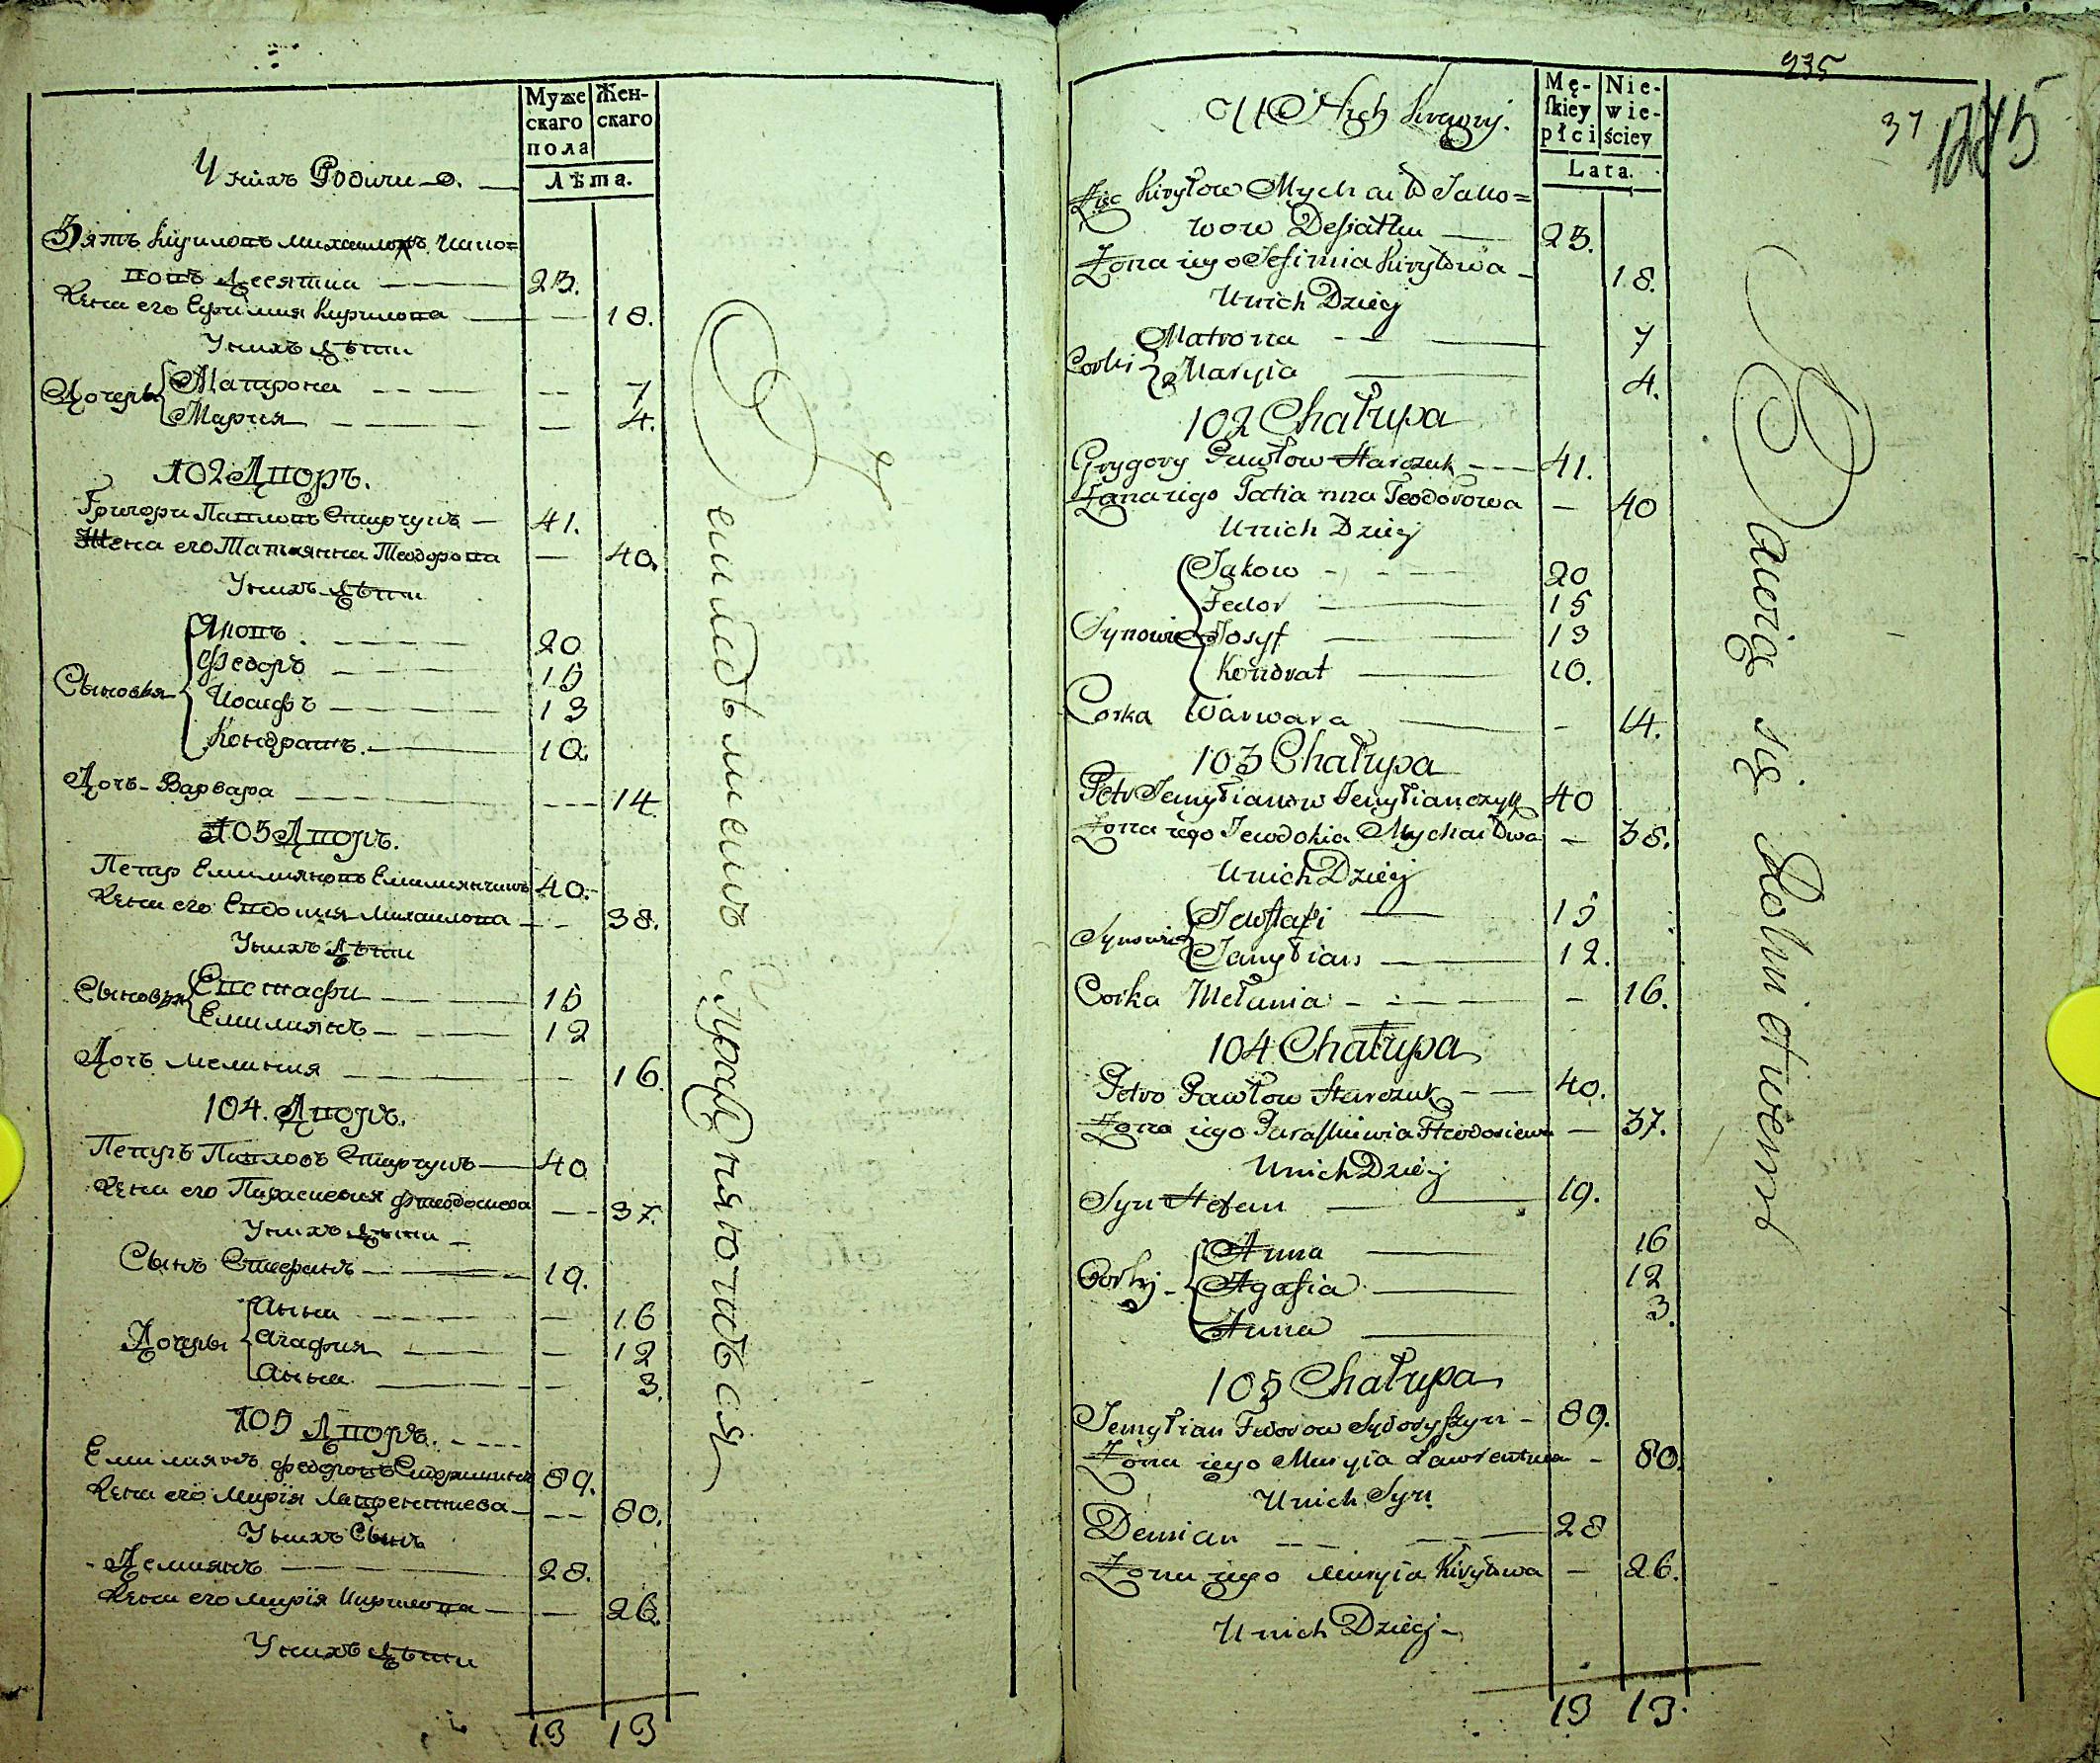 Муже
скаго
пола
Жен-
скаго
Лѣта.
У нихъ Родичи
Зять Кирилопъ Михаилопъ Якo=
попъ Десятки 23.
Жена его Ефимия Кирилопа 18.
У нихъ Дѣти
Дочеры Матрона 7
Мария 4.
102 Дпоръ.
Григори Паплопъ Старчукъ 41.
Жена его Татиянна Теодоропа 40.
У нихъ Дѣти
Якопъ 20
Федоръ 15
Сыновья Иосифъ 13
Кондратъ 10.
Дочь Варвара 14.
103 Дпоръ.
Петр Емилиянопъ Емилиянчикъ 40.
Жена его Епдокия Михаилопа 38.
У нихъ Дѣти
Сыновья Епстафи 15
Емилиянъ 12
Дочь Мелания 16.
104. Дпоръ.
Петръ Павловъ Старчукъ 40
Жена его Параскевия Фтеодосиева 37.
У нихъ Дѣти
Сынъ Стефанъ 19.
Анна 16
Дочеры Агафия 12
Анна 3.
105 Дпоръ.
Емилиянъ Федоропъ 89.
Жена его Марїя Лапрентиева 80.
У нихъ Сынъ
Демиянъ 28.
Жена его Марїя Кирилопа 26.
У нихъ Дѣти
13 13
Землѣдѣлиемъ Упражняютъся
935
37
1245
Mę-
ſkiey
płci
Nie-
wie-
ściey
Lata.
U Nich Krewnj.
Zięc Kiryłow Mychaiło Jako=
wow Desiatku 23.
Zona iego Jefimia Kiryłowa 18.
U nich Dziecj
Corki Matrona 7
Maryia 4.
102 Chałupa
Grygory Pawłow Starczuk 41.
Zona iego Tatianna Teodorowa 40
U nich Dziecj
Jakow 20
Fedor 15
Synowie Josyf 13
Kondrat 10.
Corka Warwara 14.
103 Chałupa
Petr Jemyłianow Jemyłianczyk 40
Zona iego Jewdokia Mychaiłowa 38.
U nich Dziecj
Synowie Jewstafi 15
Jemyłian 12.
Corka Mełania 16.
104 Chałupa
Petro Pawłow Starczuk 40.
Zona iego Paraskiewia Fteodosiewa 37.
U nich Dziecj
Syn Stefan 19.
Anna 16
Corkj Agafia 12
Anna 3.
105 Chałupa
Jemyłian Fedorow Sydoryszyn 89.
Zona iego Maryia Ławrentiewa 80.
U nich Syn
Demian 28
Zona iego Maryia Kiryłowa 26.
U nich Dziecj
13 13.
Bawią się Rolnictwem